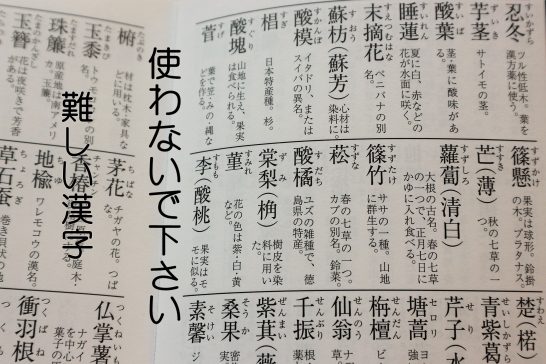 使わないで下さい
難しい漢字
忍冬 ツル性低木。葉を漢方薬に使う。
芋茎 ずいき サトイモの茎。
酸葉 すいば 茎・葉に酸味がある。
睡蓮 すいれん 夏に白、赤などの花が水面に咲く。
末摘花 すえつむはな ベニバナの別名。
蘇枋(蘇芳) すおう 心材は染料に。
酸模 すかんぽ イタドリ、またはスイバの異名。
椙 すぎ 日本特産種。杉。
酸塊 すぐり 山地に生え、果実は食べられる。
菅 すげ 葉で笠・みの・縄などを作る。
篠懸 すずかけ 果実は球形。鈴掛の木。プラタナス。
蘿蔔(清白) すずしろ 大根の古名。春の七草の一つで、正月七日にかゆに入れ食べる。
芒(薄) すすき 秋の七草の一つ。
篠竹 すずたけ ササの一種。山地に群生する。
菘 すずな 春の七草の一つ。カブの別名。鈴菜。
酸橘 すだち ユズの雑種で、徳島県の特産。
棠梨(桷) ずみ 樹皮を染料に用いた。
菫 すみれ 花の色は紫・白・黄など。
李(酸桃) すもも 果実はモモに似る。
青紫葛
芹子
塘蒿 セロリ
栴檀 せんだん
仙翁 せんのう
千振 せんぶり
紫萁 ぜんまい
桑果 そうか
素馨 そけい
玉黍
珠簾
玉簪
茅花 つばな チガヤの花。
香椿
地楡 ワレモコウの漢名。
草石蚕 ちょろぎ
衝羽根 つくばね
仏掌薯 つくねいも